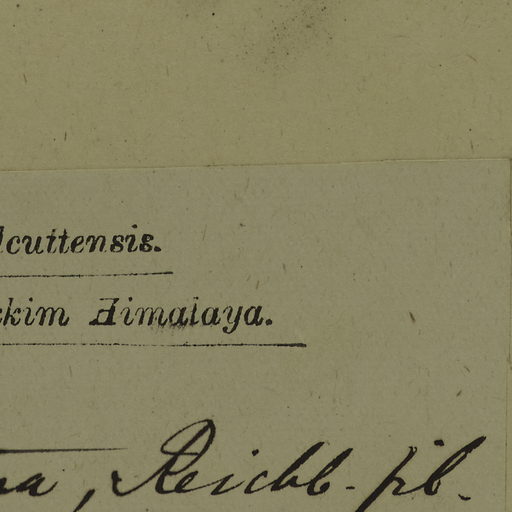 lcuttensis.
kkim Himalaya.
na, Reichb. fil.